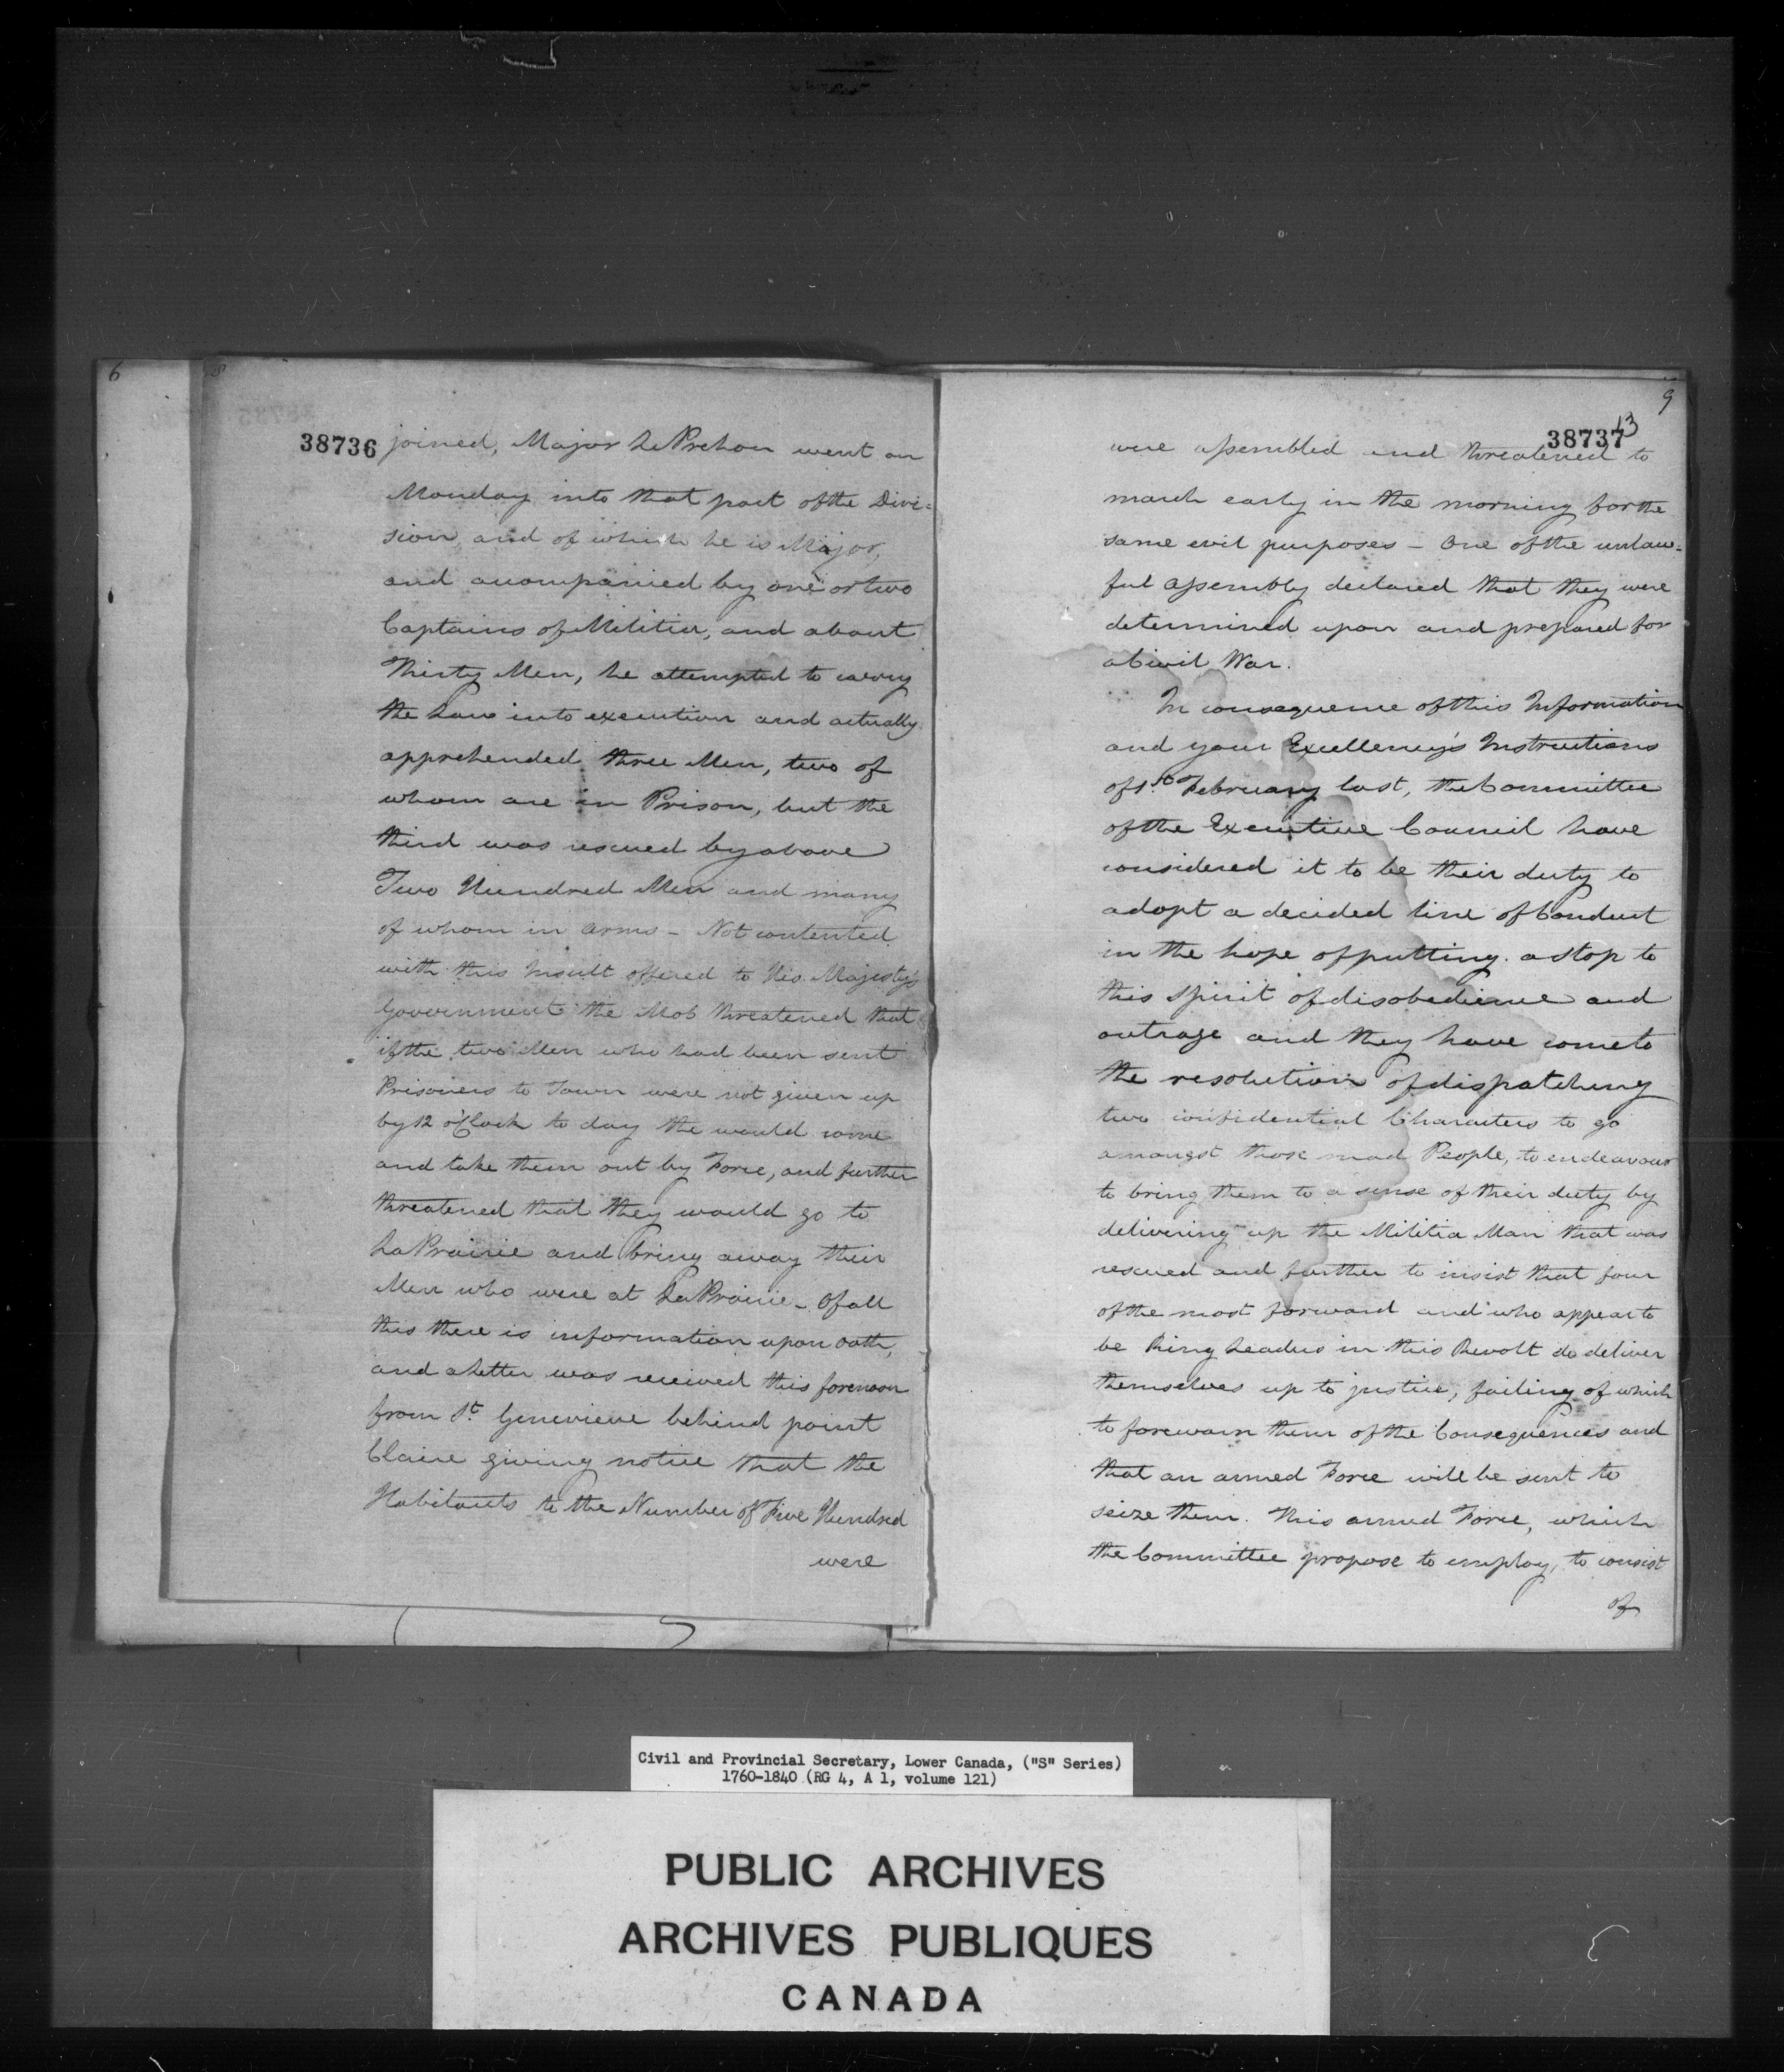 6
8
38736
joined, Major LePrehon went on
Monday into that part of the Divi=
sion, and of which he is Major,
and accompanied by one or two
Captains of Militia, and about
Thirty Men, he attempted to carry
the Law into execution and actually
apprehended three Men, two of
whom are in Prison, but the
third was rescued by above
Two Hundred Men and many
of whom in arms - Not contented
with this Insult offered to His Majesty's
Government the Mob threatened that
if the two Men who had been sent
Prisoners to Town were not given up
by 12 o'Clock to day the would come
and take them out by Force, and further
threatened that they would go to
LaPrairie and bring away their
Men who were at LaPrairie - Of all
this there is information upon Oath,
and a Letter was received this forenoon
from St. Genevieve behind point
Claire giving notice that the
Habitants to the Number of Five Hundred
were
9
13
38737
were assembled and threatened to
march early in the morning for the
same evil purposes - One of the unlaw=
ful assembly declared that they were
determined upon and prepared for
a Civil War.
In consequence of this Information
and your Excellency's Instructions
of 1st February last, the Committee
of the Executive Council have
considered it to be their duty to
adopt a decided line of Conduct
in the hope of putting a stop to
this spirit of disobedience and
outrage and they have come to
the resolution of dispatching
two confidential Characters to go
amongst those mad People, to endeavour
to bring them to a sense of their duty by
delivering up the Militia Man that was
rescued and further to insist that four
of the most forward and who appear to
be Ring Leaders in this Revolt do deliver
themselves up to justice, failing of which
to forewarn them of the Consequences and
that an armed Force will be sent to
seize them. This armed Force, which
the Committee propose to employ, to consist
of
Civil and Provincial Secretary, Lower Canada, ("S" Series)
1760-1840 (RG 4, A 1, volume 121)
PUBLIC ARCHIVES
ARCHIVES PUBLIQUES
CANADA